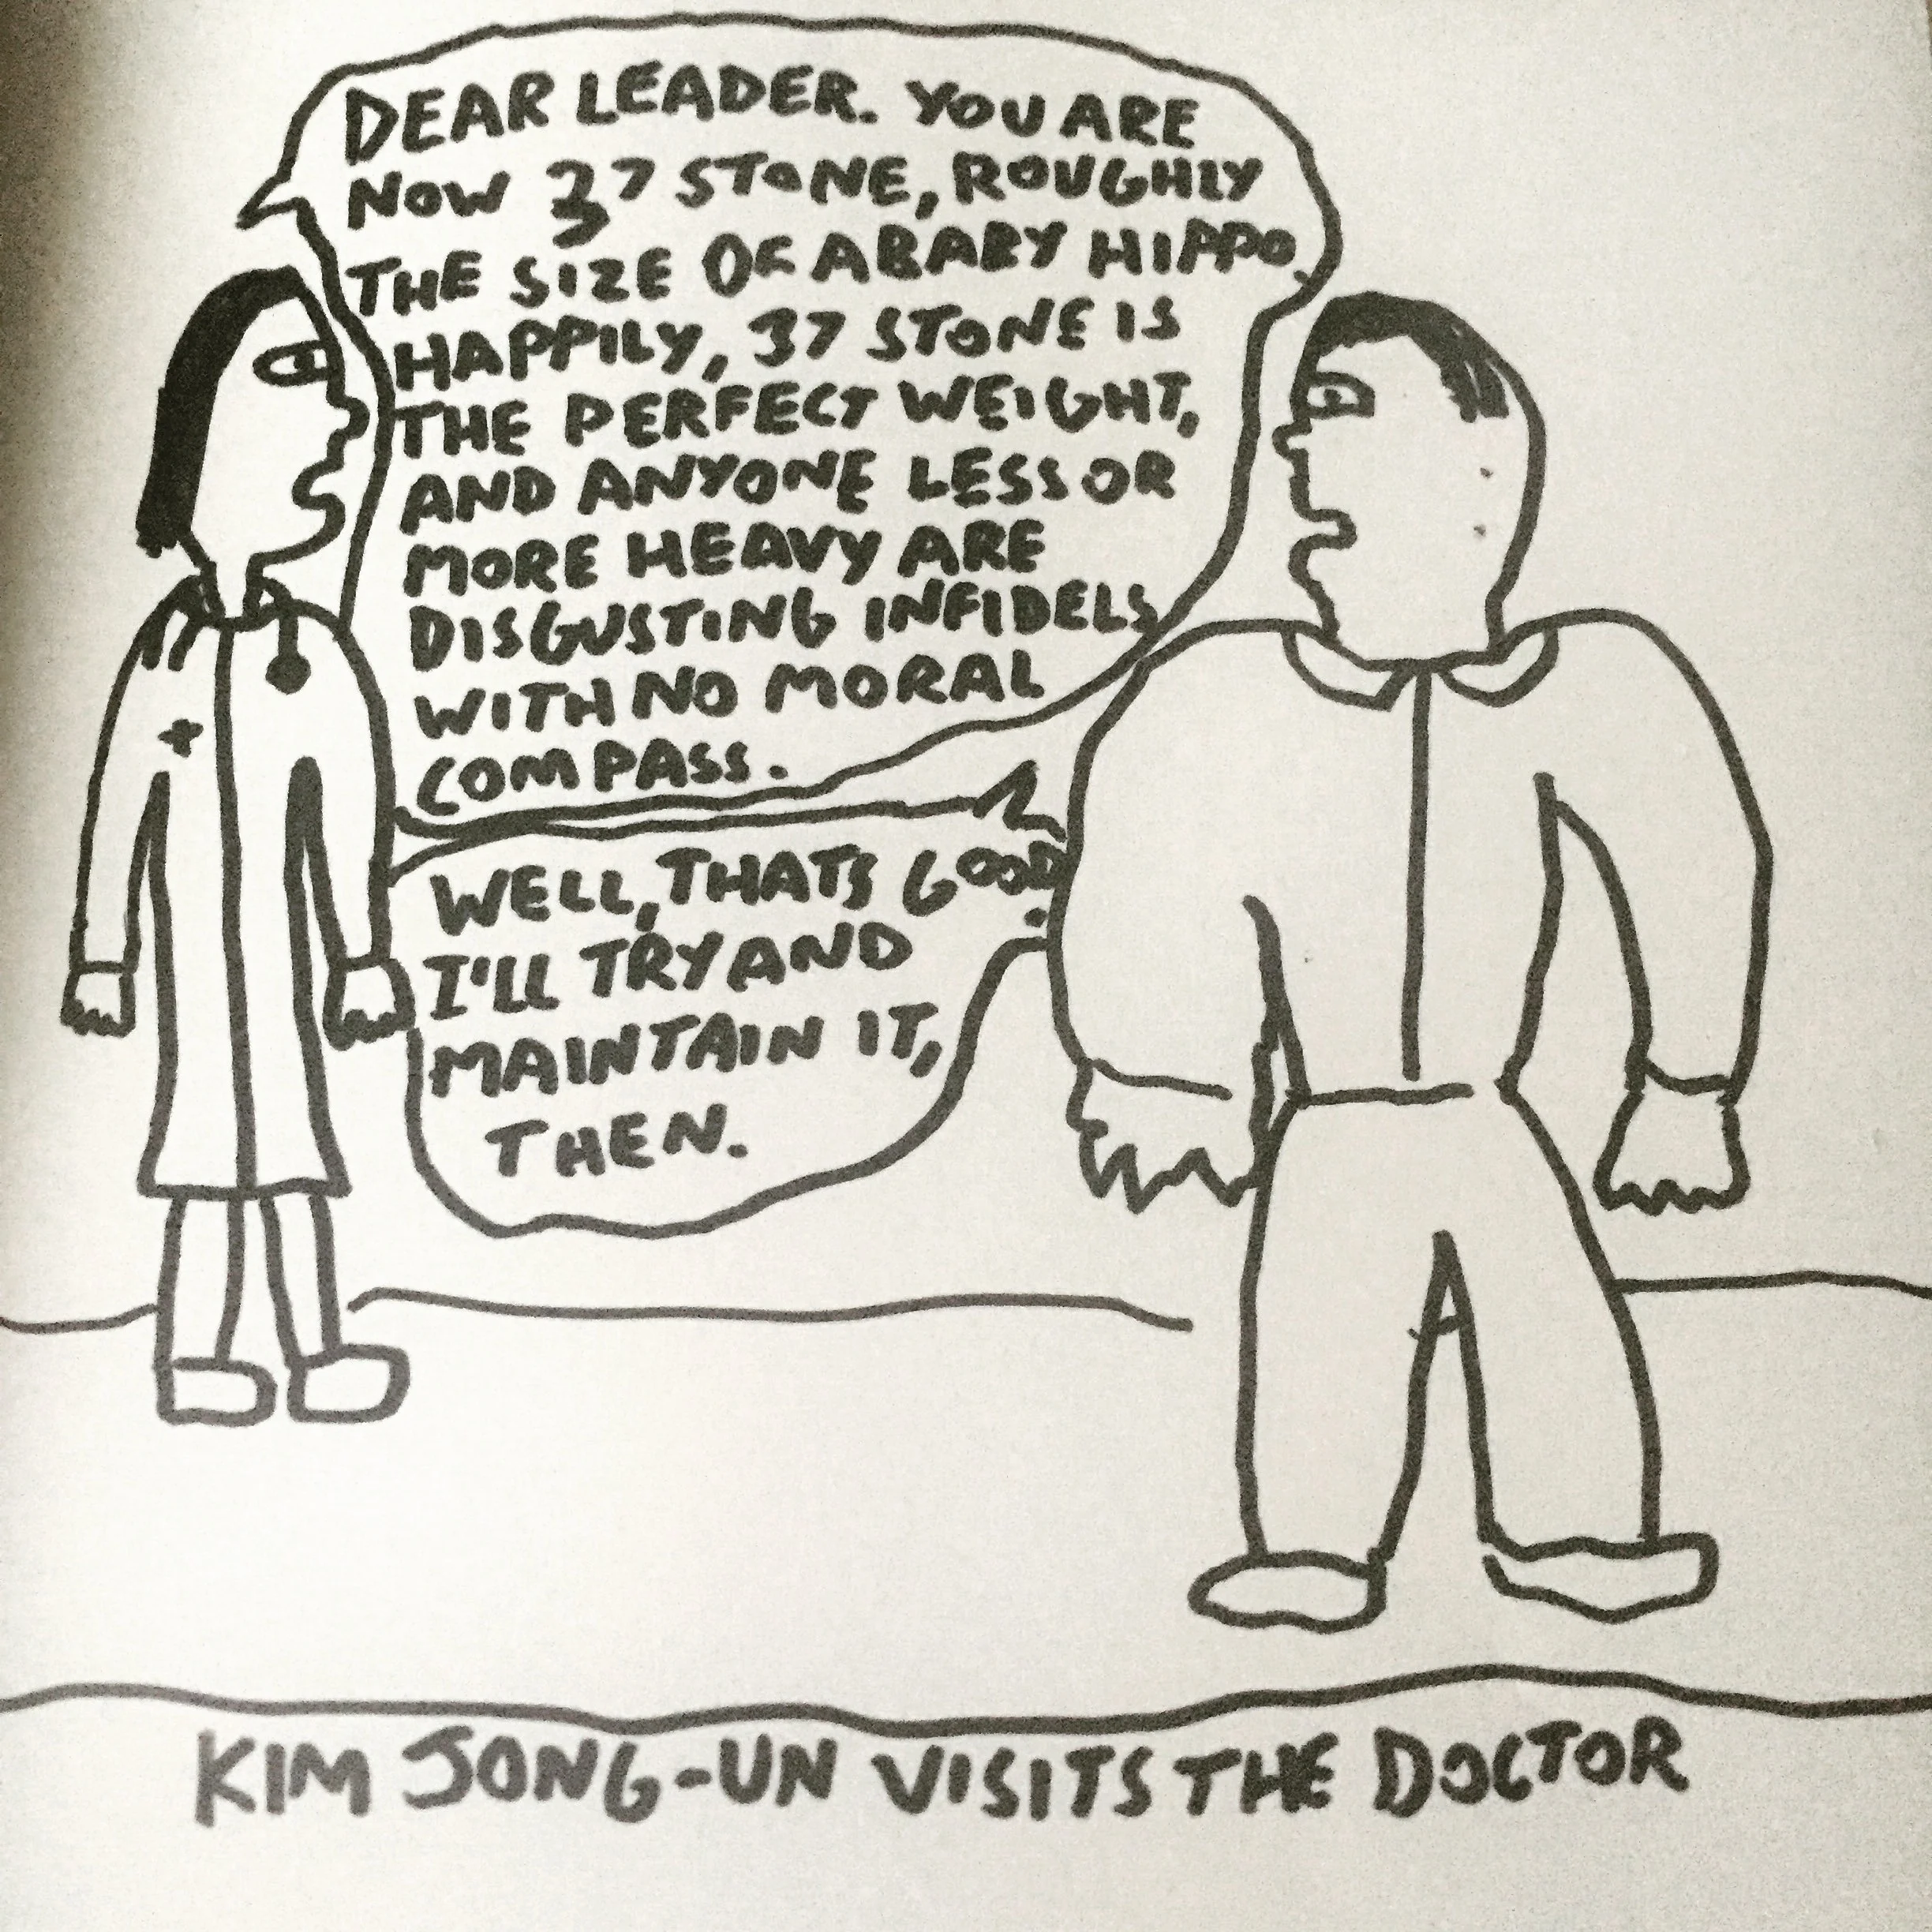 DEAR LEADER. YOU ARE
NOW 37 STONE, ROUGHLY
THE SIZE OF A BABY HIPPO.
HAPPILY, 37 STONE IS
THE PERFECT WEIGHT,
AND ANYONE LESS OR
MORE HEAVY ARE
DISGUSTING INFIDELS
WITH NO MORAL
COMPASS.
WELL, THATS GOOD.
I'LL TRY AND
MAINTAIN IT,
THEN.
KIM JONG-UN VISITS THE DOCTOR